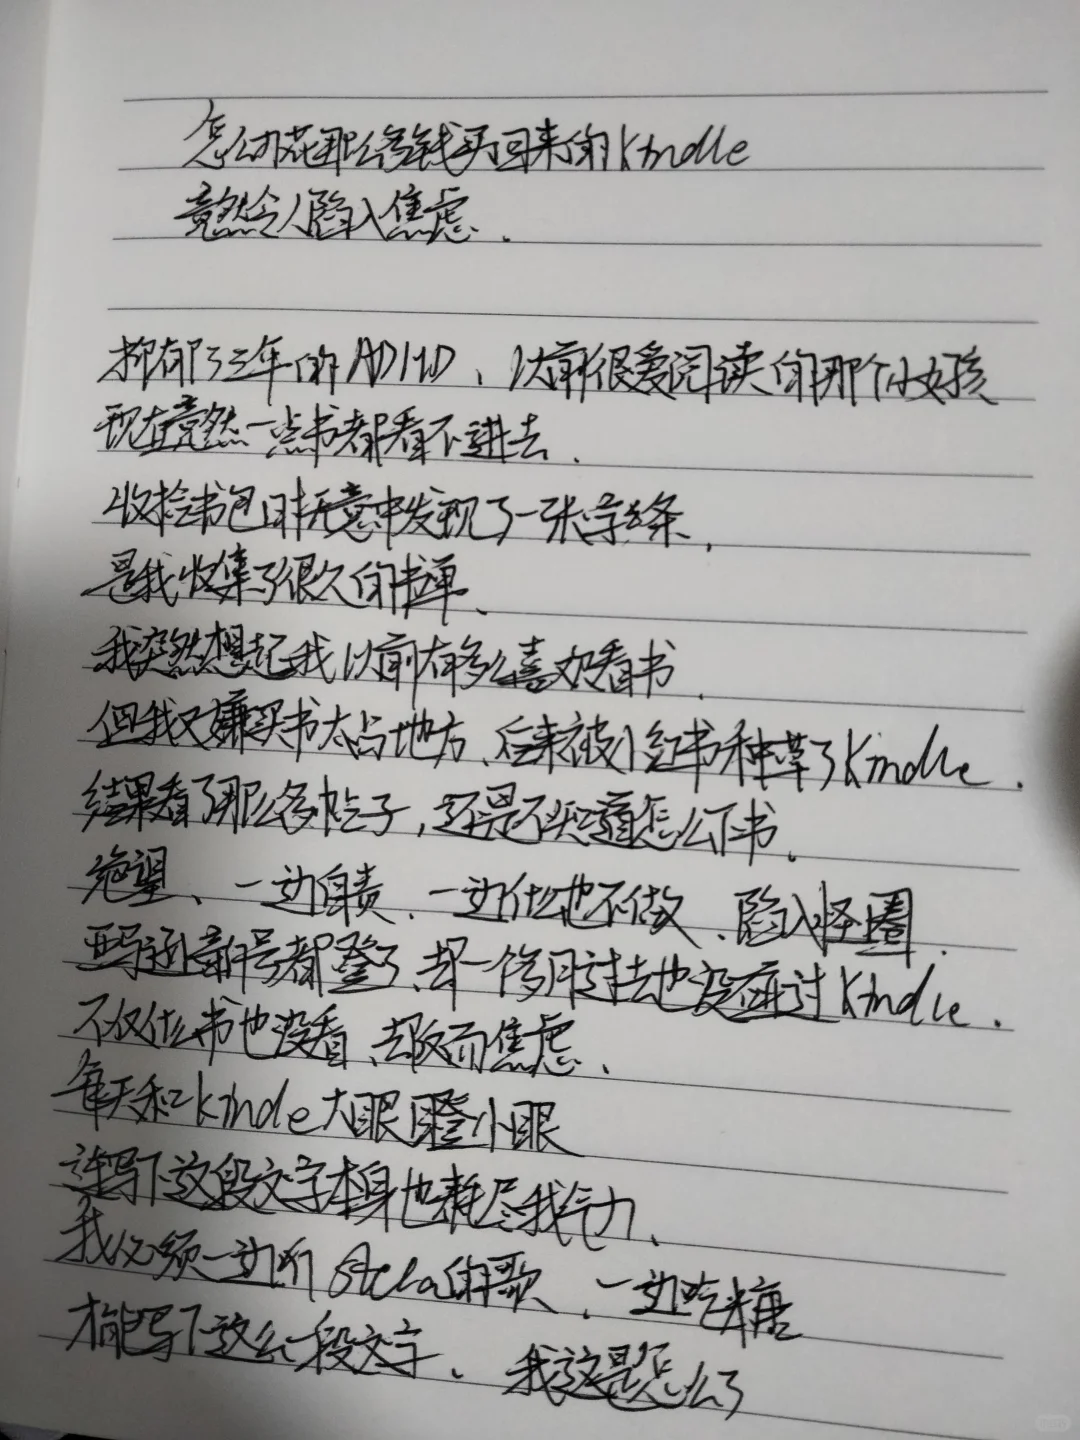 怎么办花那么多钱买回来的Kindle
竟然令人陷入焦虑.
抑郁了三年的ADHD、以前很爱阅读的那个小女孩
现在竟然一点书都看不进去.
收拾书包时无意中发现了一张字条,
是我收集了很久的书单、
我突然想起我以前有多么喜欢看书.
但我又嫌买书太占地方、后来被小红书种草了Kindle.
结果看了那么多帖子,还是不知道怎么下书.
绝望、一边自责、一边什么也不做、陷入怪圈.
亚马逊账号都登了、却一个多月过去也没碰过Kindle.
不仅什么书也没看、却反而焦虑、
每天和kindle大眼瞪小眼
连写下这段文字本身也耗尽我气力、
我必须一边听 的歌、一边吃糖
才能写下这么一段文字、我这是怎么了